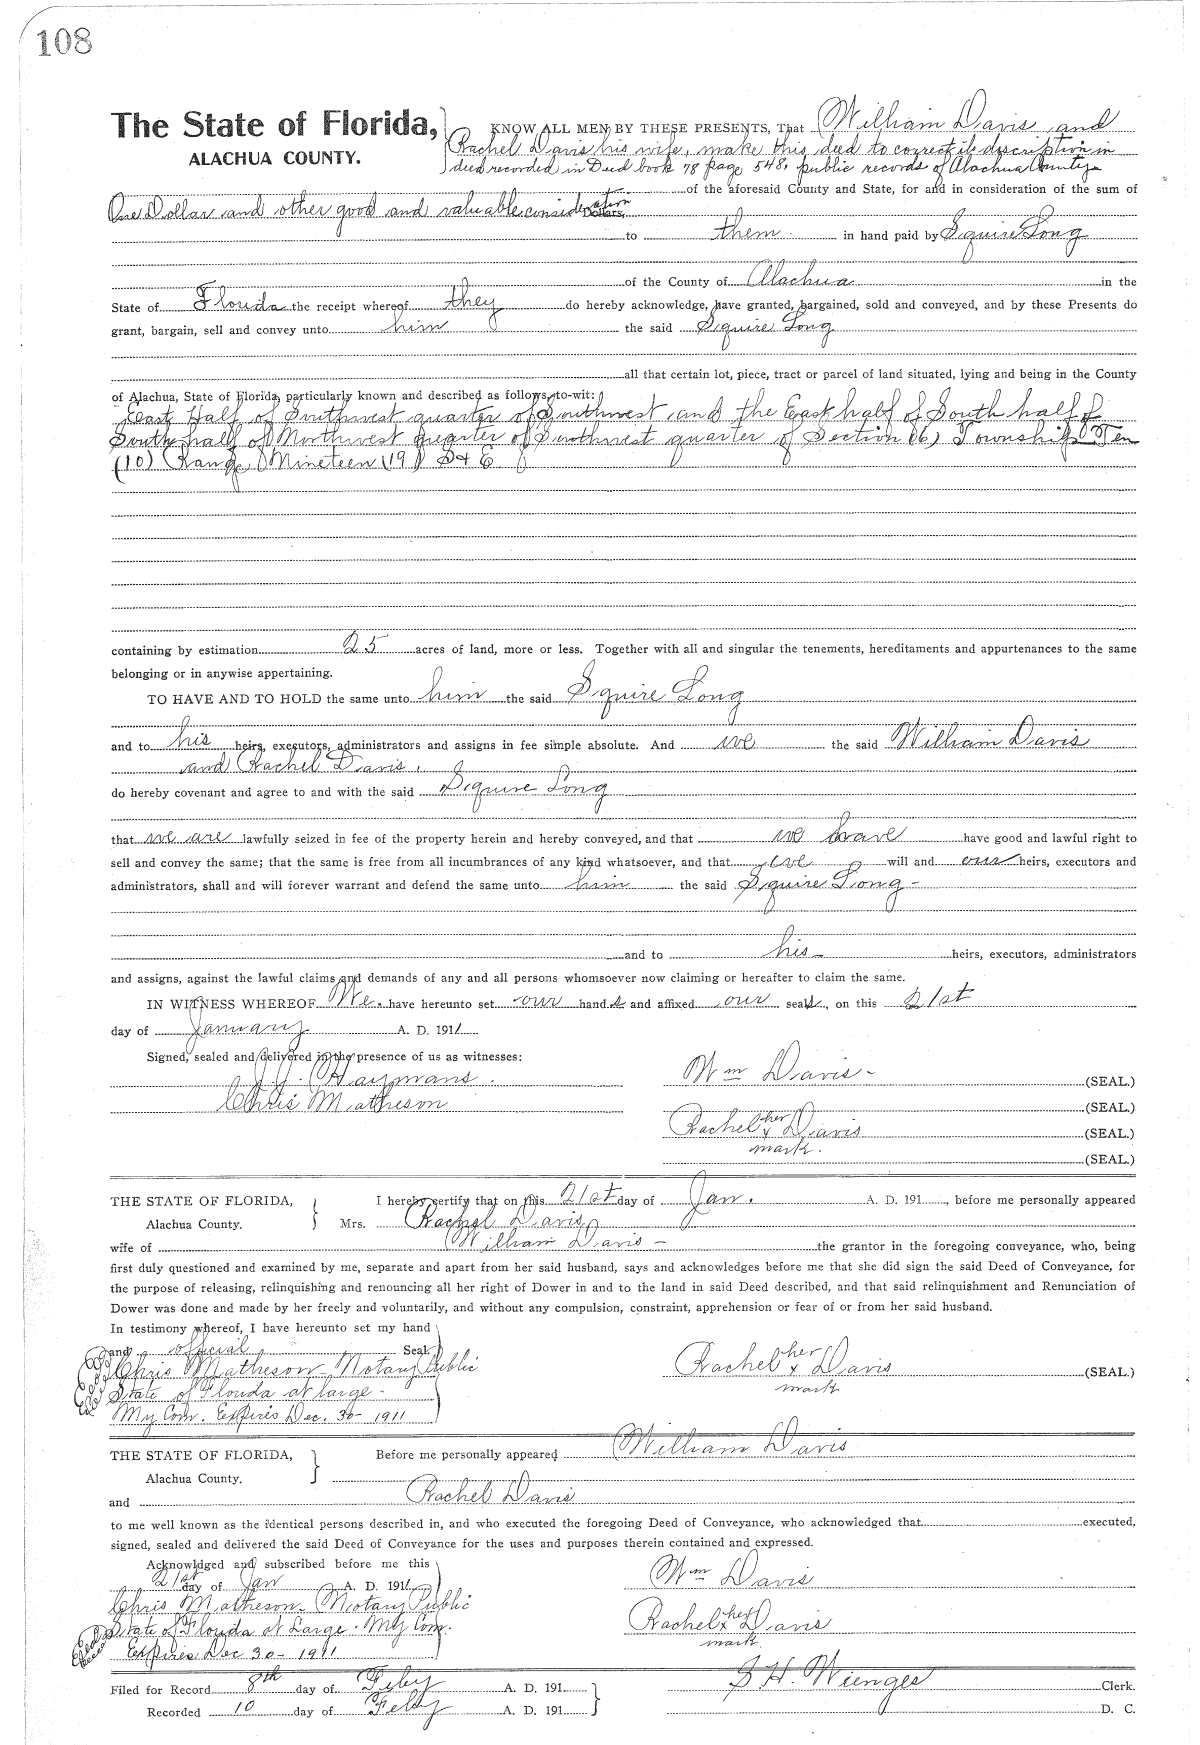 108
The State of Florida,
ALACHUA COUNTY.
KNOW ALL MEN BY THESE PRESENTS, That William Davis and
Rachel Davis his wife, make this deed to correct description in
deed recorded in Deed book 78 page 548, public records of Alachua County
of the aforesaid County and State, for and in consideration of the sum of
One Dollar and other good and valuable consideration Dollars,
to them in hand paid by Squire Long
of the County of Alachua in the
State of Florida the receipt whereof they do hereby acknowledge, have granted, bargained, sold and conveyed, and by these Presents do
grant, bargain, sell and convey unto him the said Squire Long
all that certain lot, piece, tract or parcel of land situated, lying and being in the County
of Alachua, State of Florida, particularly known and described as follows, to-wit:
East Half of Southwest quarter of Southwest and the East half of South half of
South half of Northwest quarter of Southwest quarter of Section (6) Township Ten
(10) Range Nineteen (19) S & E
containing by estimation 25 acres of land, more or less. Together with all and singular the tenements, hereditaments and appurtenances to the same
belonging or in anywise appertaining.
TO HAVE AND TO HOLD the same unto him the said Squire Long
and to his heirs, executors, administrators and assigns in fee simple absolute. And we the said William Davis
and Rachel Davis.
do hereby covenant and agree to and with the said Squire Long
that we are lawfully seized in fee of the property herein and hereby conveyed, and that we have have good and lawful right to
sell and convey the same; that the same is free from all incumbrances of any kind whatsoever, and that we will and our heirs, executors and
administrators, shall and will forever warrant and defend the same unto him the said Squire Long -
and to his heirs, executors, administrators
and assigns, against the lawful claims and demands of any and all persons whomsoever now claiming or hereafter to claim the same.
IN WITNESS WHEREOF We have hereunto set our hands and affixed our seals, on this 21st
day of January A. D. 1911
Signed, sealed and delivered in the presence of us as witnesses:
J. J. Haymans.
Wm Davis - (SEAL.)
Chris Matheson
(SEAL.)
Rachel her x mark Davis (SEAL.)
(SEAL.)
THE STATE OF FLORIDA,
Alachua County.
I hereby certify that on this 21st day of Jan. A. D. 191 , before me personally appeared
Mrs. Rachel Davis
wife of William Davis - the grantor in the foregoing conveyance, who, being
first duly questioned and examined by me, separate and apart from her said husband, says and acknowledges before me that she did sign the said Deed of Conveyance, for
the purpose of releasing, relinquishing and renouncing all her right of Dower in and to the land in said Deed described, and that said relinquishment and Renunciation of
Dower was done and made by her freely and voluntarily, and without any compulsion, constraint, apprehension or fear of or from her said husband.
In testimony whereof, I have hereunto set my hand
and official Seal
Chris Matheson Notary Public
State of Florida at large -
My Com. Expires Dec. 30 - 1911
Rachel her x mark Davis (SEAL.)
THE STATE OF FLORIDA,
Alachua County.
Before me personally appeared William Davis
and Rachel Davis
to me well known as the identical persons described in, and who executed the foregoing Deed of Conveyance, who acknowledged that executed,
signed, sealed and delivered the said Deed of Conveyance for the uses and purposes therein contained and expressed.
Acknowldged and subscribed before me this
21st day of Jan A. D. 1911
Chris Matheson - Notary Public
State of Florida at Large. My Com.
Expires Dec 30 - 1911
Wm Davis
Rachel her x mark Davis
Filed for Record 8th day of Feby A. D. 191
Recorded 10 day of Feby A. D. 191
S. H. Wienges Clerk.
D. C.